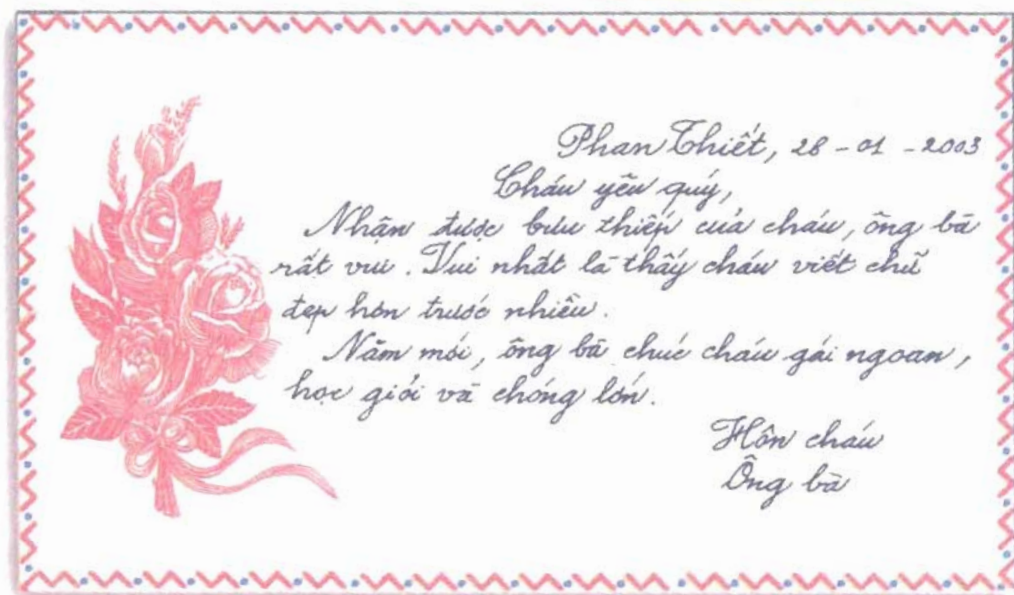 Phan Thiết, 28 - 01 - 2003
Cháu yêu quý,
Nhận được bưu thiếp của cháu, ông bà
rất vui. Vui nhất là thấy cháu viết chữ
đẹp hơn trước nhiều.
Năm mới, ông bà chúc cháu gái ngoan,
học giỏi và chóng lớn.
Hôn cháu
Ông bà